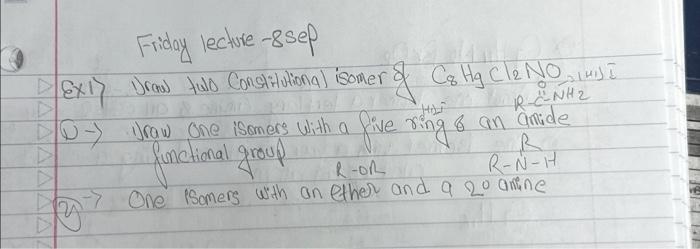 Friday lecture -8sep
EX1) Draw two Constitutional isomer of C8H9Cl2NO
O
R-C-NH2
①→ Draw one isomers with a five ring & an amide
functional group
R
R-OR R-N-H
②→ One isomers with an ether and a 2o amine